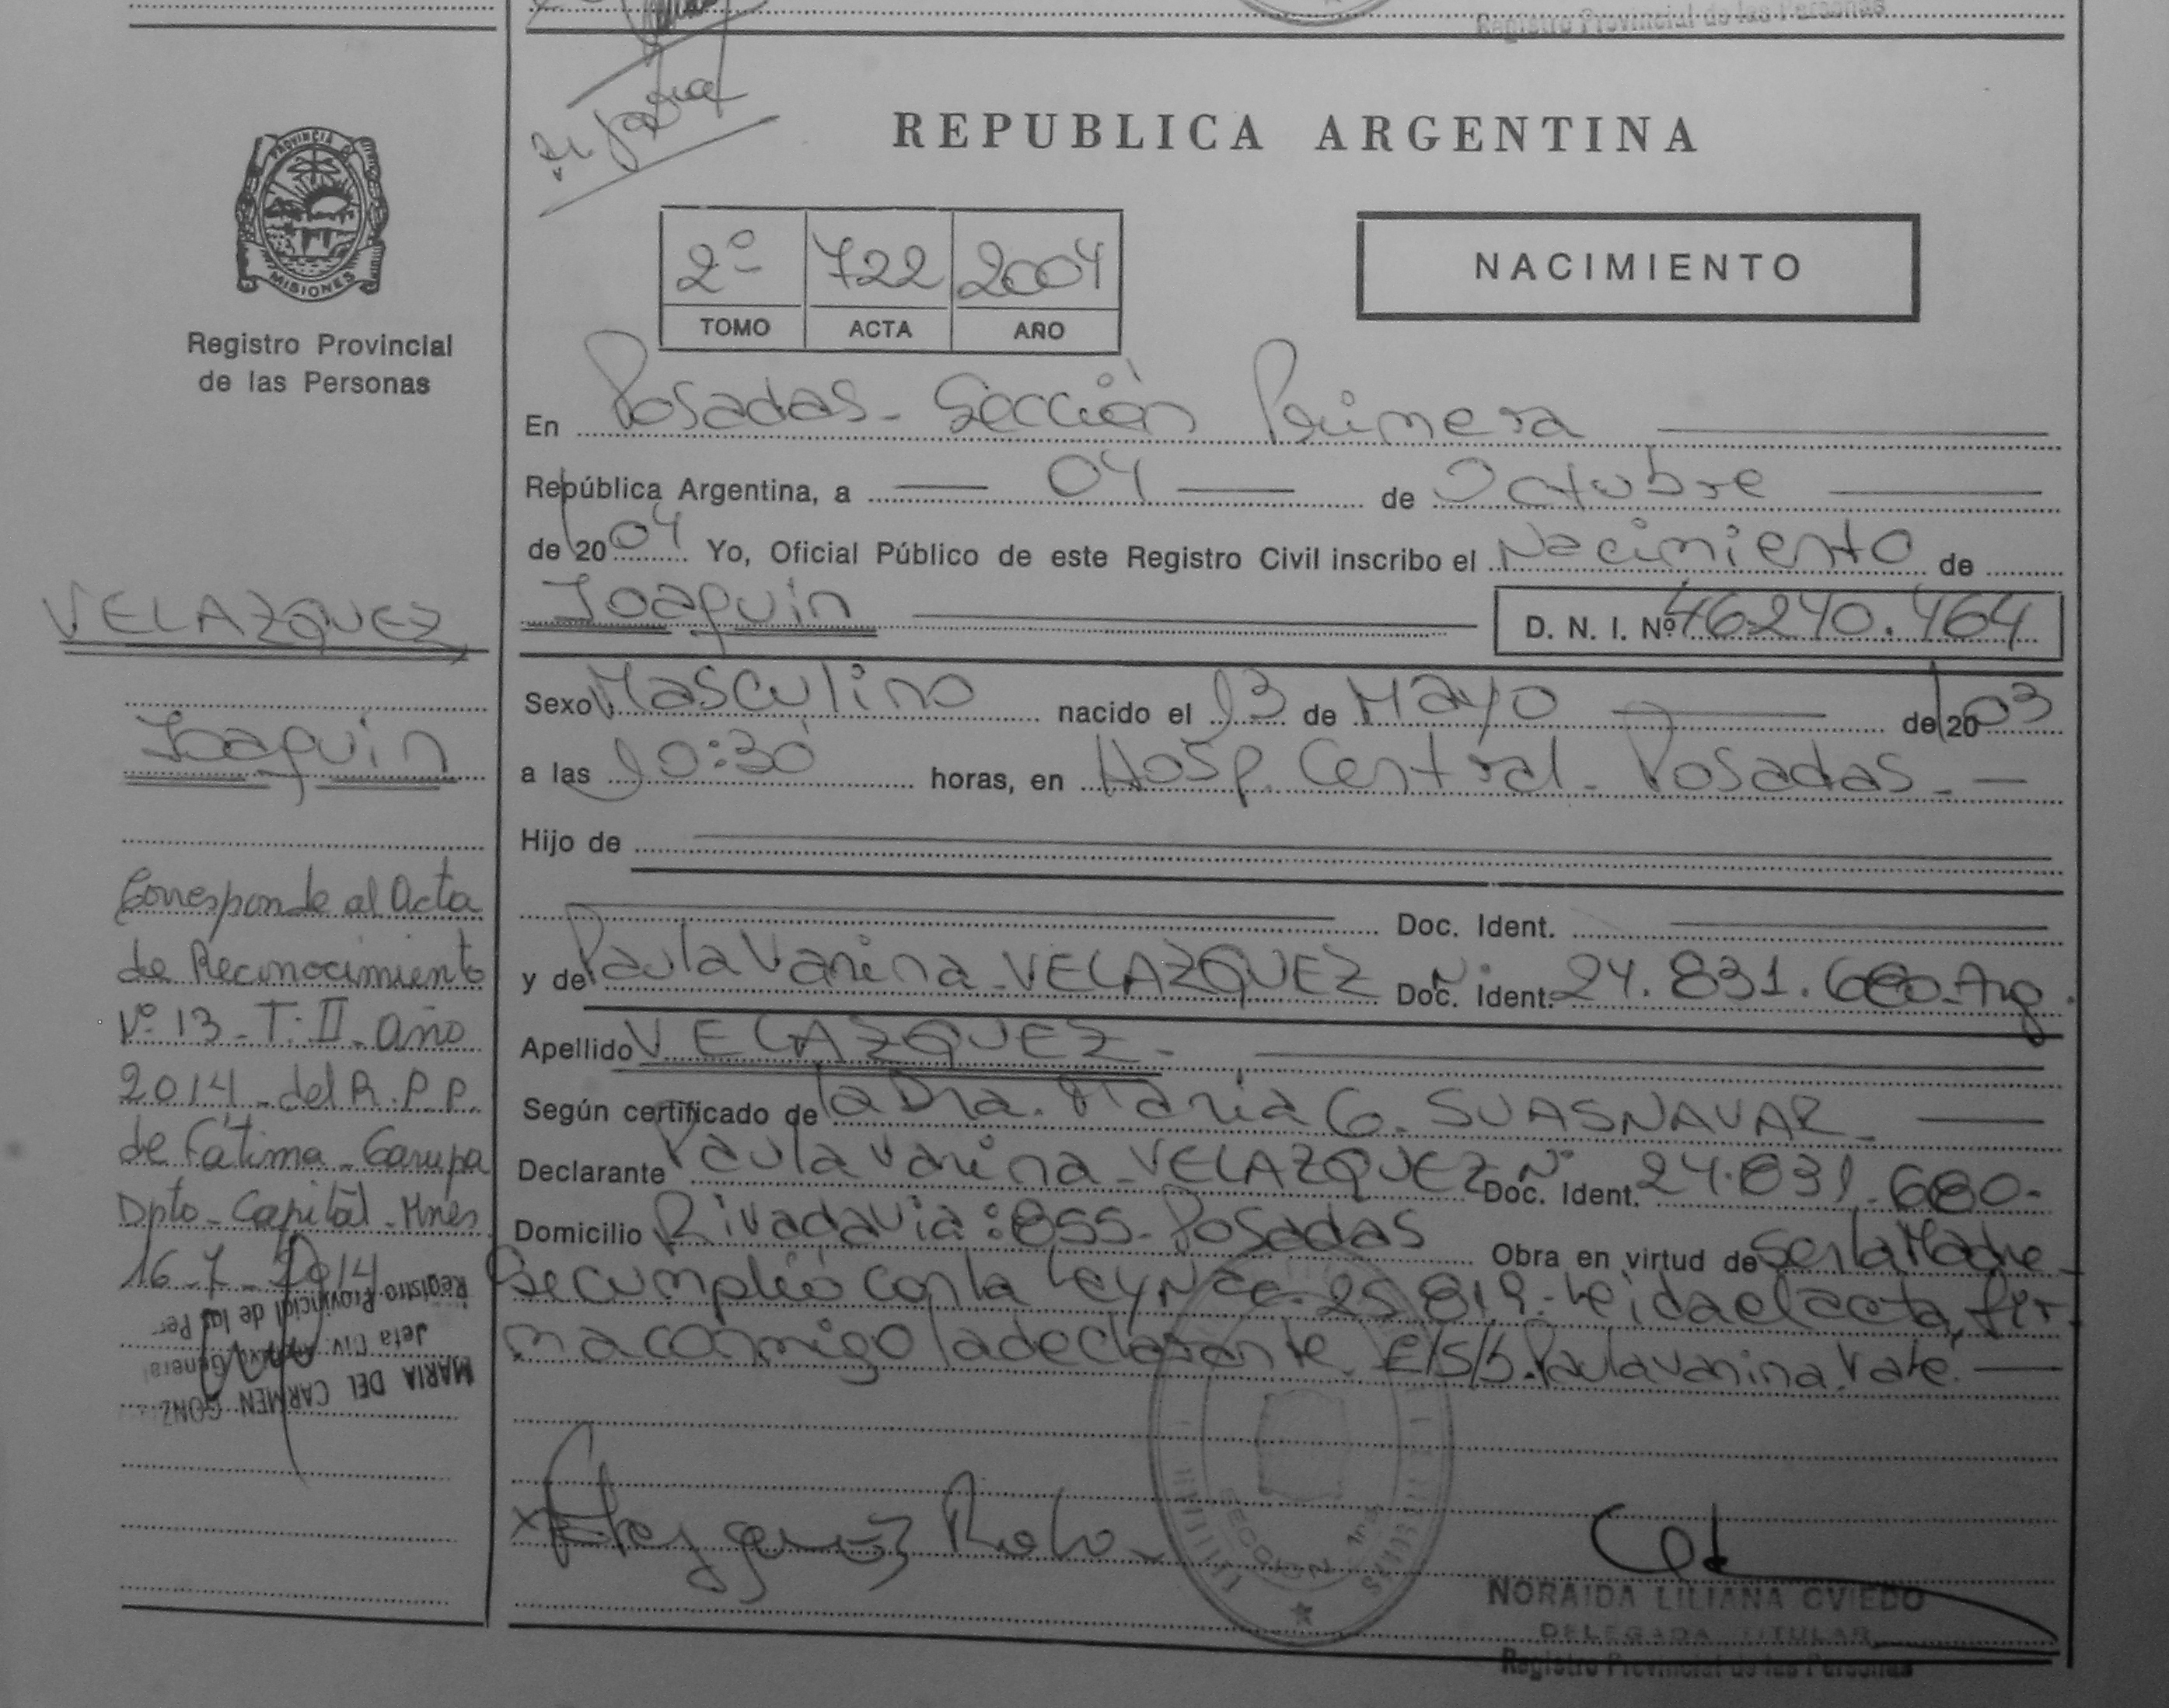 Registro Provincial de las Personas
REPUBLICA ARGENTINA
PROVINCIA D
MISIONES
Registro Provincial
de las Personas
2º 722 2004
TOMO ACTA AÑO
NACIMIENTO
En Posadas - Sección Primera
República Argentina, a 04 de Octubre
de 20 04 Yo, Oficial Público de este Registro Civil inscribo el Nacimiento de
Joaquin D. N. I. Nº 46.240.464
Sexo Masculino nacido el 13 de Mayo de 20 03
a las 10:30 horas, en Hosp. Central - Posadas -
Hijo de
Doc. Ident.
y de Paula Vanina - VELAZQUEZ Doc. Ident. Nº 24.831.680 - Arg.
Apellido VELAZQUEZ -
Según certificado de la Dra. Maria G. SUASNAVAR -
Declarante Paula Vanina - VELAZQUEZ Doc. Ident. Nº 24.831.680 -
Domicilio Rivadavia: 855 - Posadas Obra en virtud de ser la Madre -
Se cumplió con la Ley Nac. 25.819 - Leida el acta, fir
ma conmigo la declarante E/S/S. Paula Vanina. Vale.
VELAZQUEZ,
Joaquin
Corresponde al Acta
de Reconocimiento
Nº 13 - T: II - año
2014 - del R.P.P.
de Fátima - Garupa
Dpto - Capital - Mnes
16 - 7 - 2014
Registro Provincial de las Per
Jefa Div. Archivo General
MARIA DEL CARMEN GONZ
SECCION 1ra
POSADAS
NORAIDA LILIANA OVIEDO
DELEGADA TITULAR
Registro Provincial de las Personas